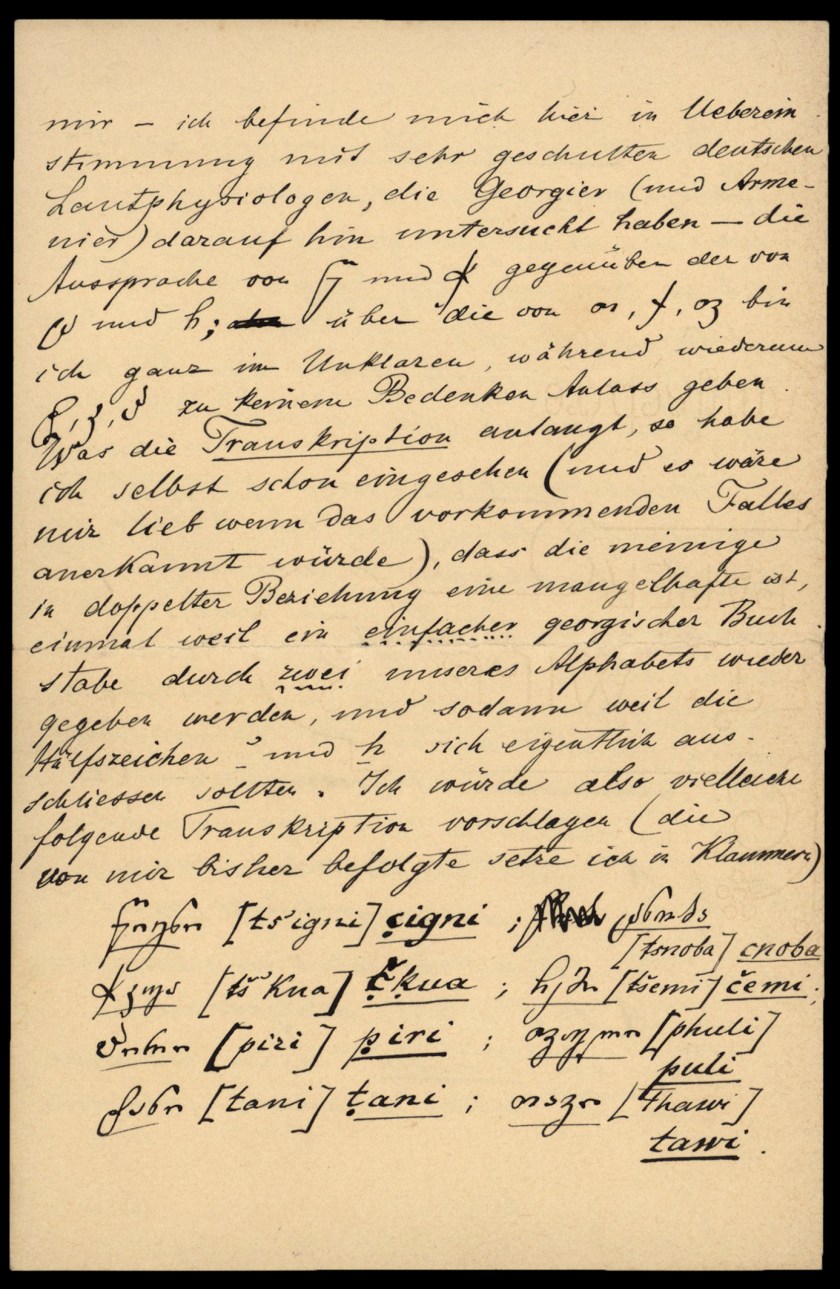 mir – ich befinde mich hier in Ueberein
stimmung mit sehr geschulten deutschen
Lautphysiologen, die Georgier (und Arme-
nier) darauf hin untersucht haben – die
Aussprache von წ und ჭ gegenüber der von
ც und ჩ; über die von თ, ქ, ფ bin
ich ganz im Unklaren, während wiederum
ტ, კ, პ zu keinem Bedenken Anlass geben.
Was die Transkription anlangt, so habe
ich selbst schon eingesehen (und es wäre
mir lieb wenn das vorkommenden Falles
anerkannt würde), dass die meinige
in doppelter Beziehung eine mangelhafte ist,
einmal weil ein einfacher georgischer Buch
stabe durch zwei unseres Alphabets wieder
gegeben werden, und sodann weil die
Hülfszeichen ʾ und h sich eigentlich aus-
schliessen sollten. Ich würde also vielleicht
folgende Transkription vorschlagen (die
von mir bisher befolgte setze ich in Klammern)
წიგნი [ts'igni] c̣igni ; ცნობა
[tsnoba] cnoba
ჭკუა [tš'kua] č̣ḳua ; ჩემი [tšemi] čemi;
პირი [piri] p̣iri ; ფული [phuli]
puli
ტანი [tani] ṭani ; თავი [thawi]
tawi.